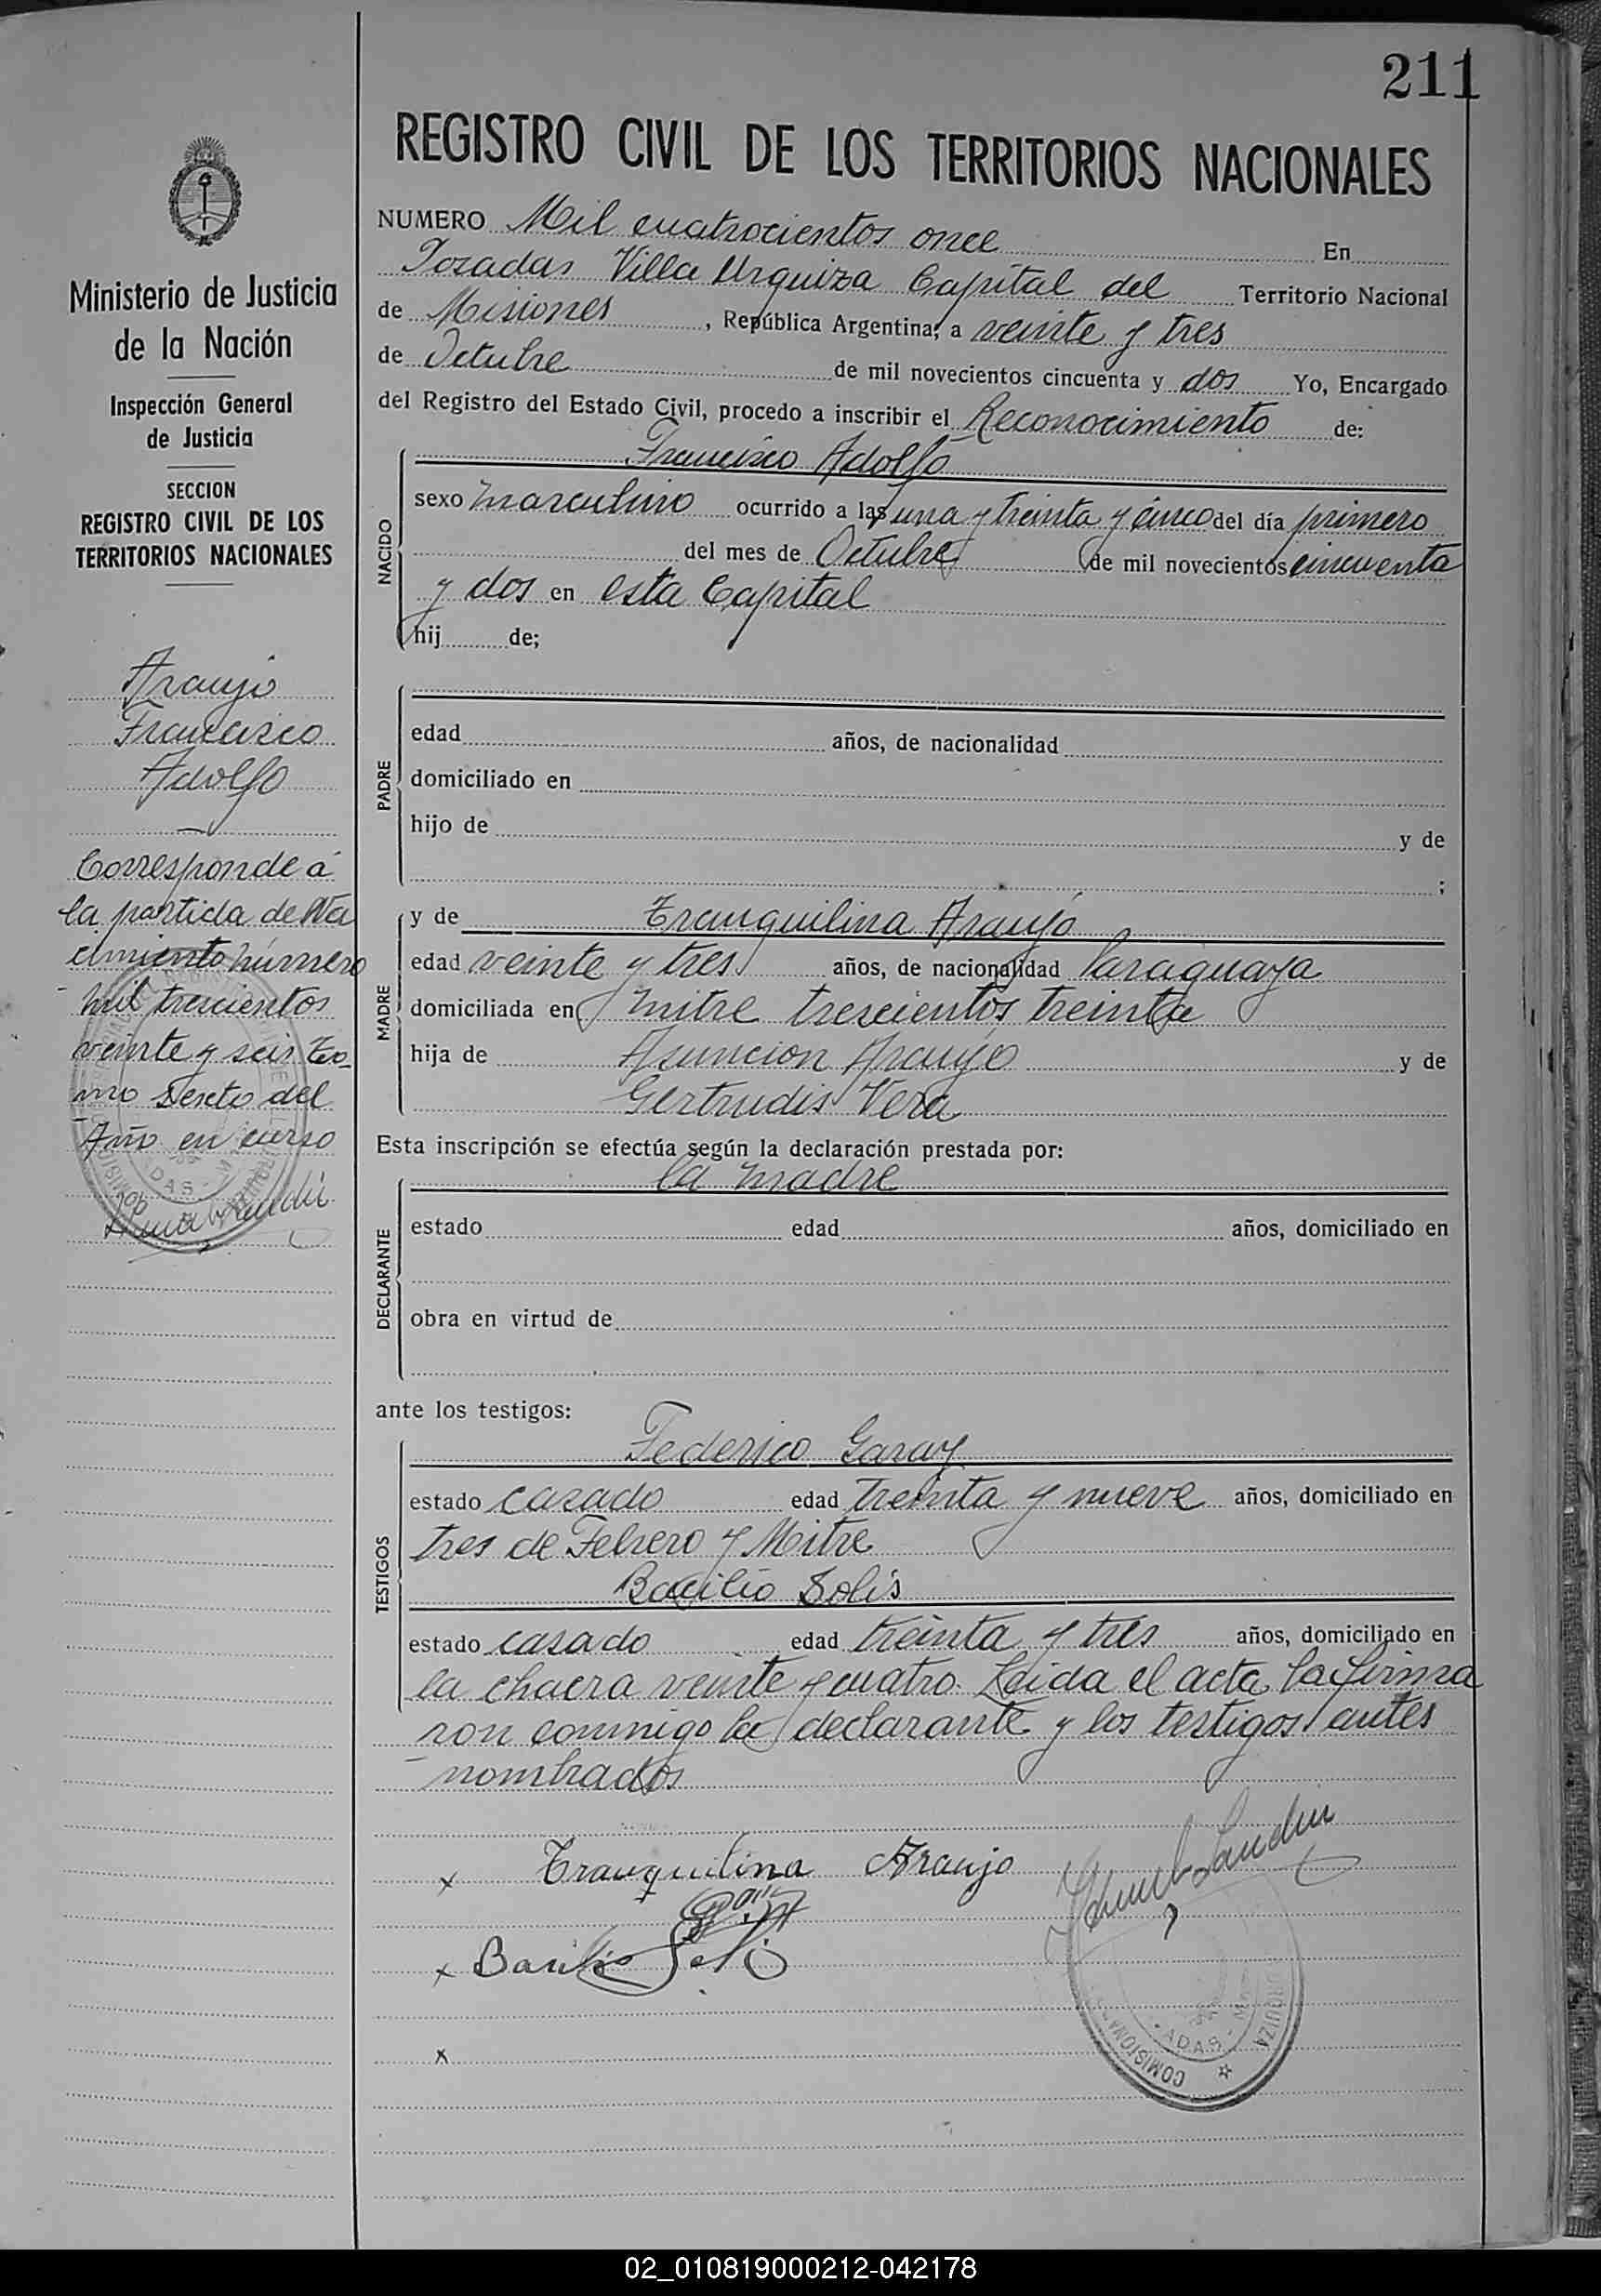 211
REGISTRO CIVIL DE LOS TERRITORIOS NACIONALES
NUMERO Mil cuatrocientos once En
Posadas Villa Urquiza Capital del Territorio Nacional
de Misiones, República Argentina, a veinte y tres
de Octubre de mil novecientos cincuenta y dos Yo, Encargado
del Registro del Estado Civil, procedo a inscribir el Reconocimiento de:
Francisco Adolfo
NACIDO
sexo masculino ocurrido a las una y treinta y cinco del día primero
del mes de Octubre de mil novecientos cincuenta
y dos en esta Capital
hij de;
PADRE
edad años, de nacionalidad
domiciliado en
hijo de y de
;
MADRE
y de Tranquilina Araujo
edad veinte y tres años, de nacionalidad Paraguaya
domiciliada en Mitre trescientos treinta
hija de Asuncion Araujo y de
Gertrudis Vera
Esta inscripción se efectúa según la declaración prestada por:
la madre
DECLARANTE
estado edad años, domiciliado en
obra en virtud de
ante los testigos:
TESTIGOS
Federico Garay
estado casado edad treinta y nueve años, domiciliado en
tres de Febrero y Mitre
Basilio Solis
estado casado edad treinta y tres años, domiciliado en
la chacra veinte y cuatro. Leida el acta la firma
ron conmigo la declarante y los testigos antes
nombrados
x Tranquilina Araujo
x Basilio Solis
x
COMISIONA
URQUIZA
Ministerio de Justicia
de la Nación
Inspección General
de Justicia
SECCION
REGISTRO CIVIL DE LOS
TERRITORIOS NACIONALES
Araujo
Francisco
Adolfo
Corresponde á
la partida de Na
cimiento número
mil trescientos
veinte y seis to
mo Sexto del
Año en curso
02_010819000212-042178